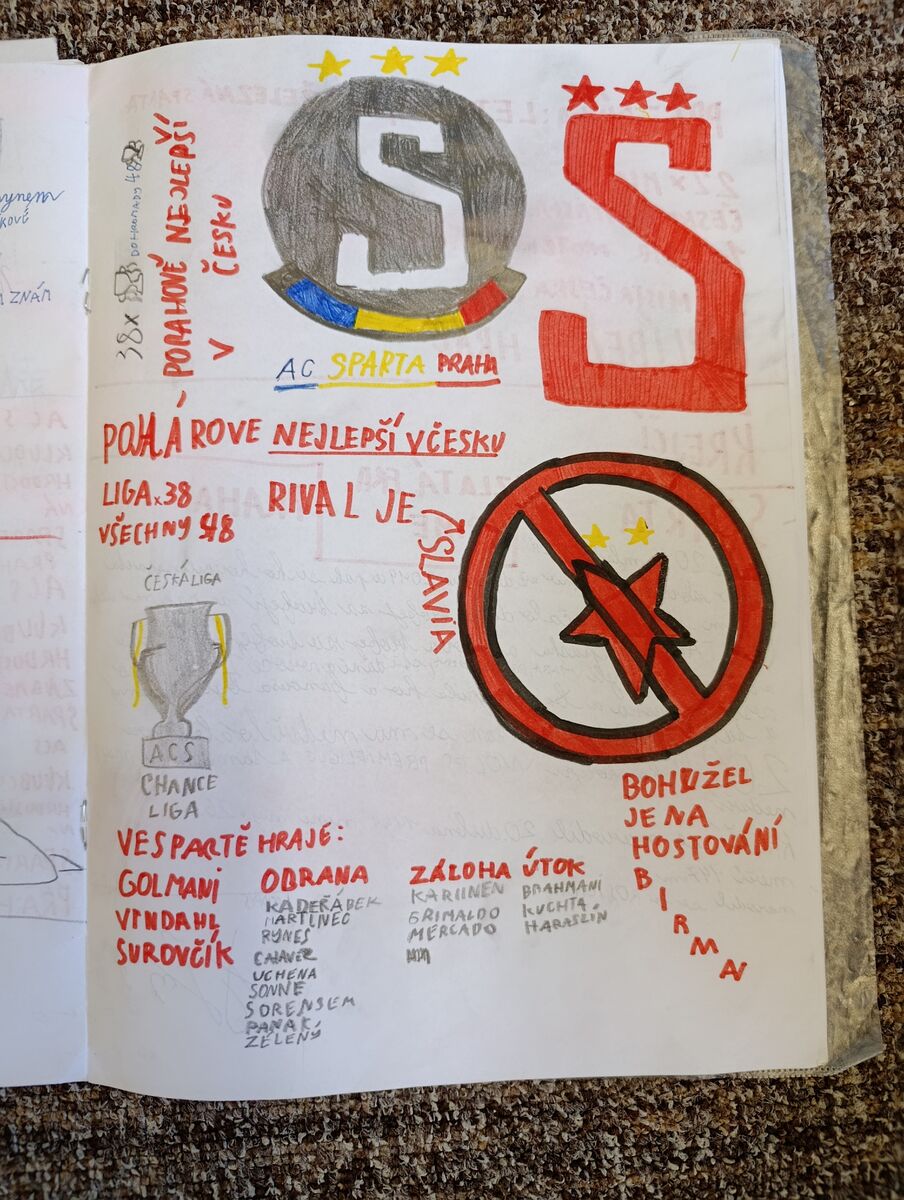 38x
DOHROMADY 48
PORAHOVĚ NEJLEPŠÍ
V ČESKU
S
AC SPARTA PRAHA
S
POHÁROVE NEJLEPŠÍ V ČESKU
LIGA x38
VŠECHNY 48
RIVAL JE
SLAVIA
ČESKÁ LIGA
ACS
CHANCE
LIGA
BOHUŽEL
JE NA
HOSTOVÁNÍ
BIRMN
VE SPARTĚ HRAJE:
GOLMANI
VINDAHL
SUROVČÍK
OBRANA
KADEŘÁBEK
MARTINEC
RYNES
UCHENA
SONNE
SORENSEM
PANAK
ZELENÝ
ZÁLOHA
KARIINEN
GRIMALDO
MERCADO
ÚTOK
BRAHMANI
KUCHTA
HARASLÍN